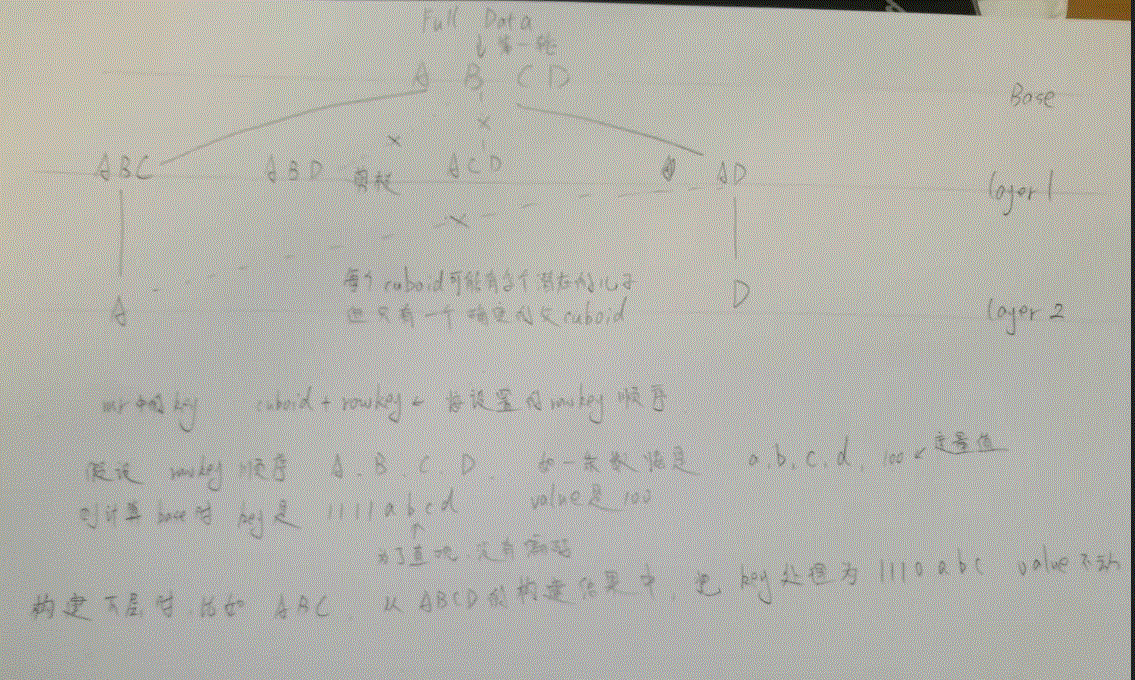 Full Data
↓ 第一轮
A B C D
Base
ABC ABD 剪枝 ACD AD
layer 1
每个cuboid可能有多个潜在的儿子
但只有一个确定的父cuboid
A D
layer 2
mr中的key cuboid + rowkey ← 按设置的rowkey顺序
假设 rowkey 顺序 A、B、C、D、 如一条数据是 a,b,c,d, 100 ← 度量值
则计算base时 key是 1111abcd value是 100
为了直观,没有编码
构建下层时,比如 ABC,从ABCD的构建结果中,把 key处理为 1110abc value不动